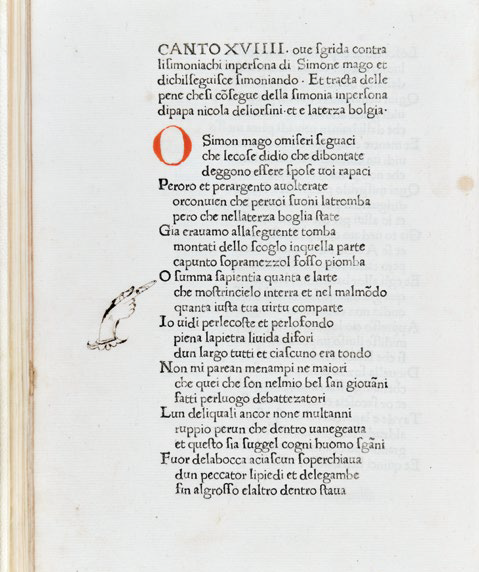 CANTO XVIIII. oue ſgrida contra
liſimoniachi inperſona di Simone mago et
dichilſeguiſce ſimoniando . Et tracta delle
pene cheſi cõſegue della ſimonia inperſona
dipapa nicola deliorſini·et e laterza bolgia·
O Simon mago omiſeri ſeguaci
che lecoſe didio che dibontate
deggono eſſere ſpoſe uoi rapaci
Peroro et perargento auolterate
orconuien che peruoi ſuoni latromba
pero che nellaterza boglia ſtate
Gia erauamo allaſeguente tomba
montati dello ſcoglo inquella parte
capunto ſopramezzol foſſo piomba
O ſumma ſapientia quanta e larte
che moſtrincielo interra et nel malmõdo
quanta iuſta tua uirtu comparte
Io uidi perlecoſte et perlofondo
piena lapietra liuida difori
dun largo tutti et ciaſcuno era tondo
Non mi parean menampi ne maiori
che quei che ſon nelmio bel ſan giouãni
fatti perluogo debattezatori
Lun deliquali ancor none multanni
ruppio perun che dentro uanegaua
et queſto ſia ſuggel cogni huomo ſgãni
Fuor delabocca aciaſcun ſoperchiaua
dun peccator lipiedi et delegambe
ſin algroſſo elaltro dentro ſtaua